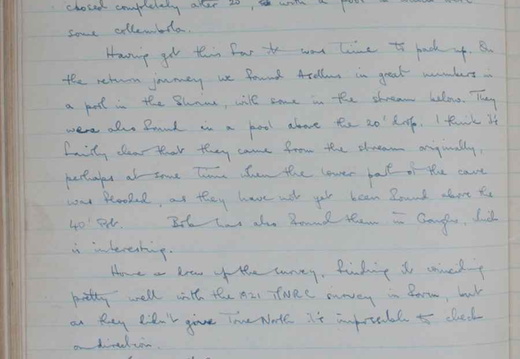 closed completely after 20', with a pool in which were
some collembola.
Having got this far it was time to pack up. On
the return journey we found Asellus in great numbers in
a pool in the Shrine, with some in the stream below. They
were also found in a pool above the 20' drop. I think it's
fairly clear that they came from the stream originally,
perhaps at some time when the lower part of the cave
was flooded, as they have not yet been found above the
40' Pot. Bob has also found them in Goughs, which
is interesting.
Home & drew up the survey, finding it coinciding
pretty well with the MNRC survey in form, but
as they didn't give True North it's impossible to check
on direction.